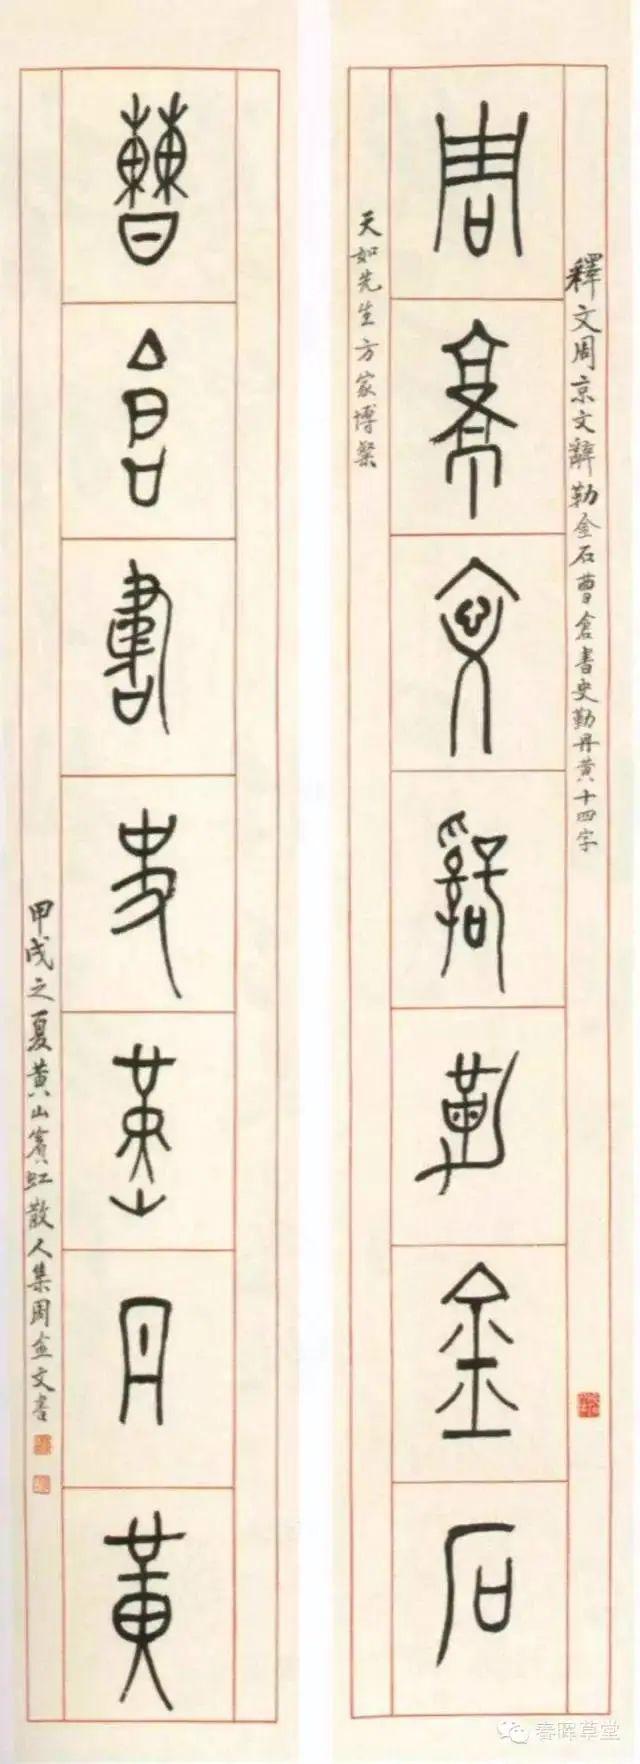 釋文周京文辭勒金石曹倉書史勤丹黃十四字
周京文辭勒金石
天如先生方家博粲
曹倉書史勤丹黃
甲戌之夏黃山賓虹散人集周金文書
春晖草堂